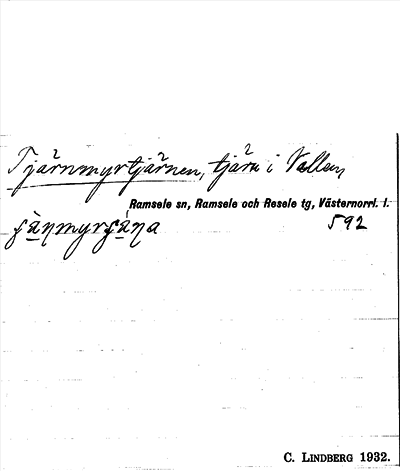 Tjärnmyrtjärnen, tjärn i Vallen,
Ramsele sn, Ramsele och Resele tg, Västernorrl. l.
592
C. LINDBERG 1932.